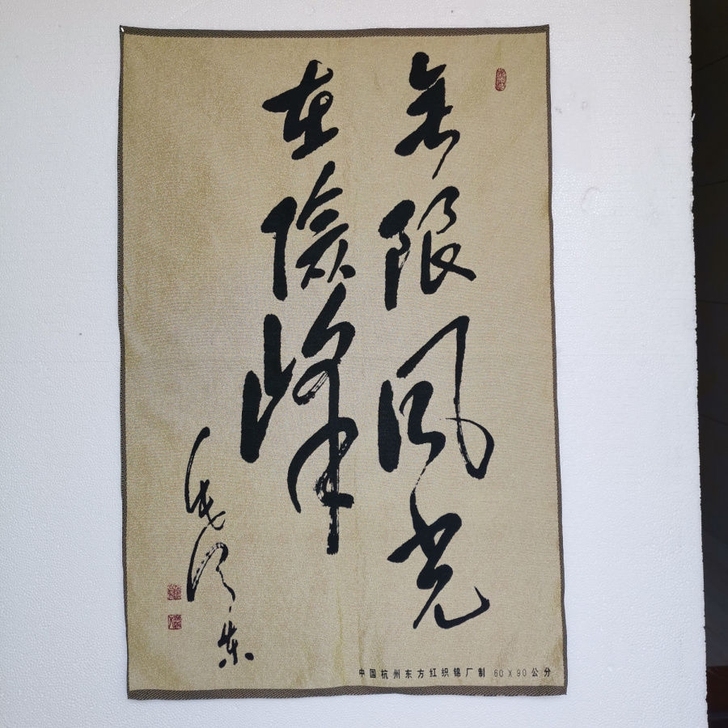 无限风光
在險峰
毛泽东
中国杭州东方红织锦厂制 60X90公分